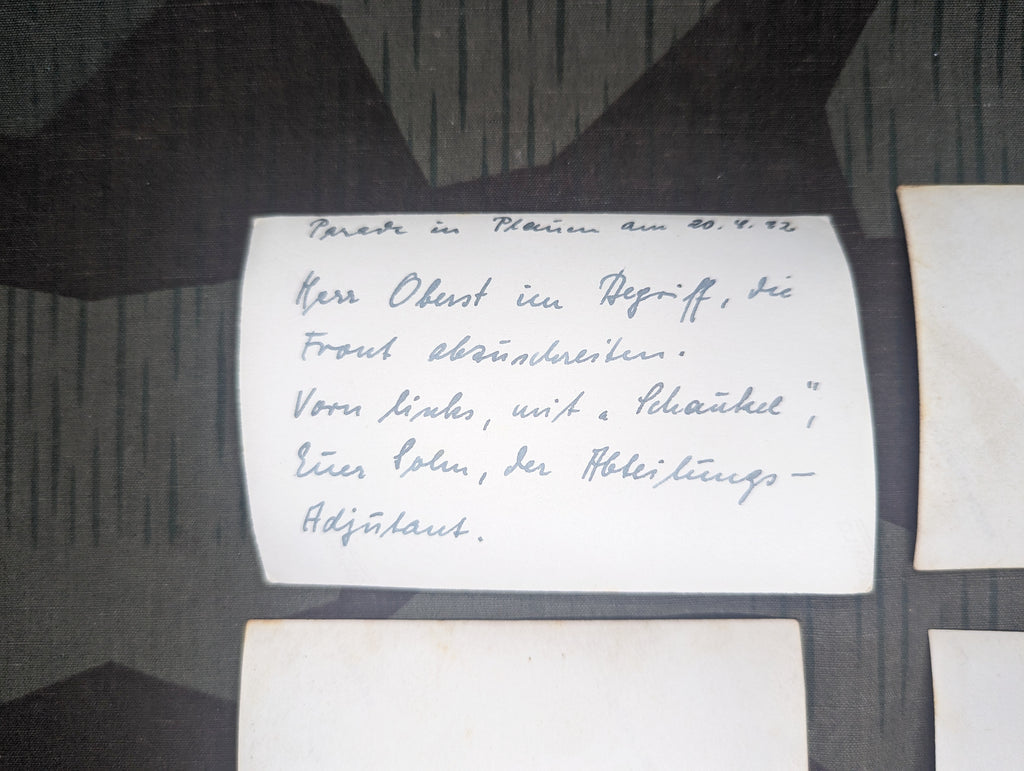 Parade in Plauen am 20.4.42
Herr Oberst im Begriff, die
Front abzuschreiten.
Vorn links, mit „Schaukel",
Euer Sohn, der Abteilungs-
Adjutant.